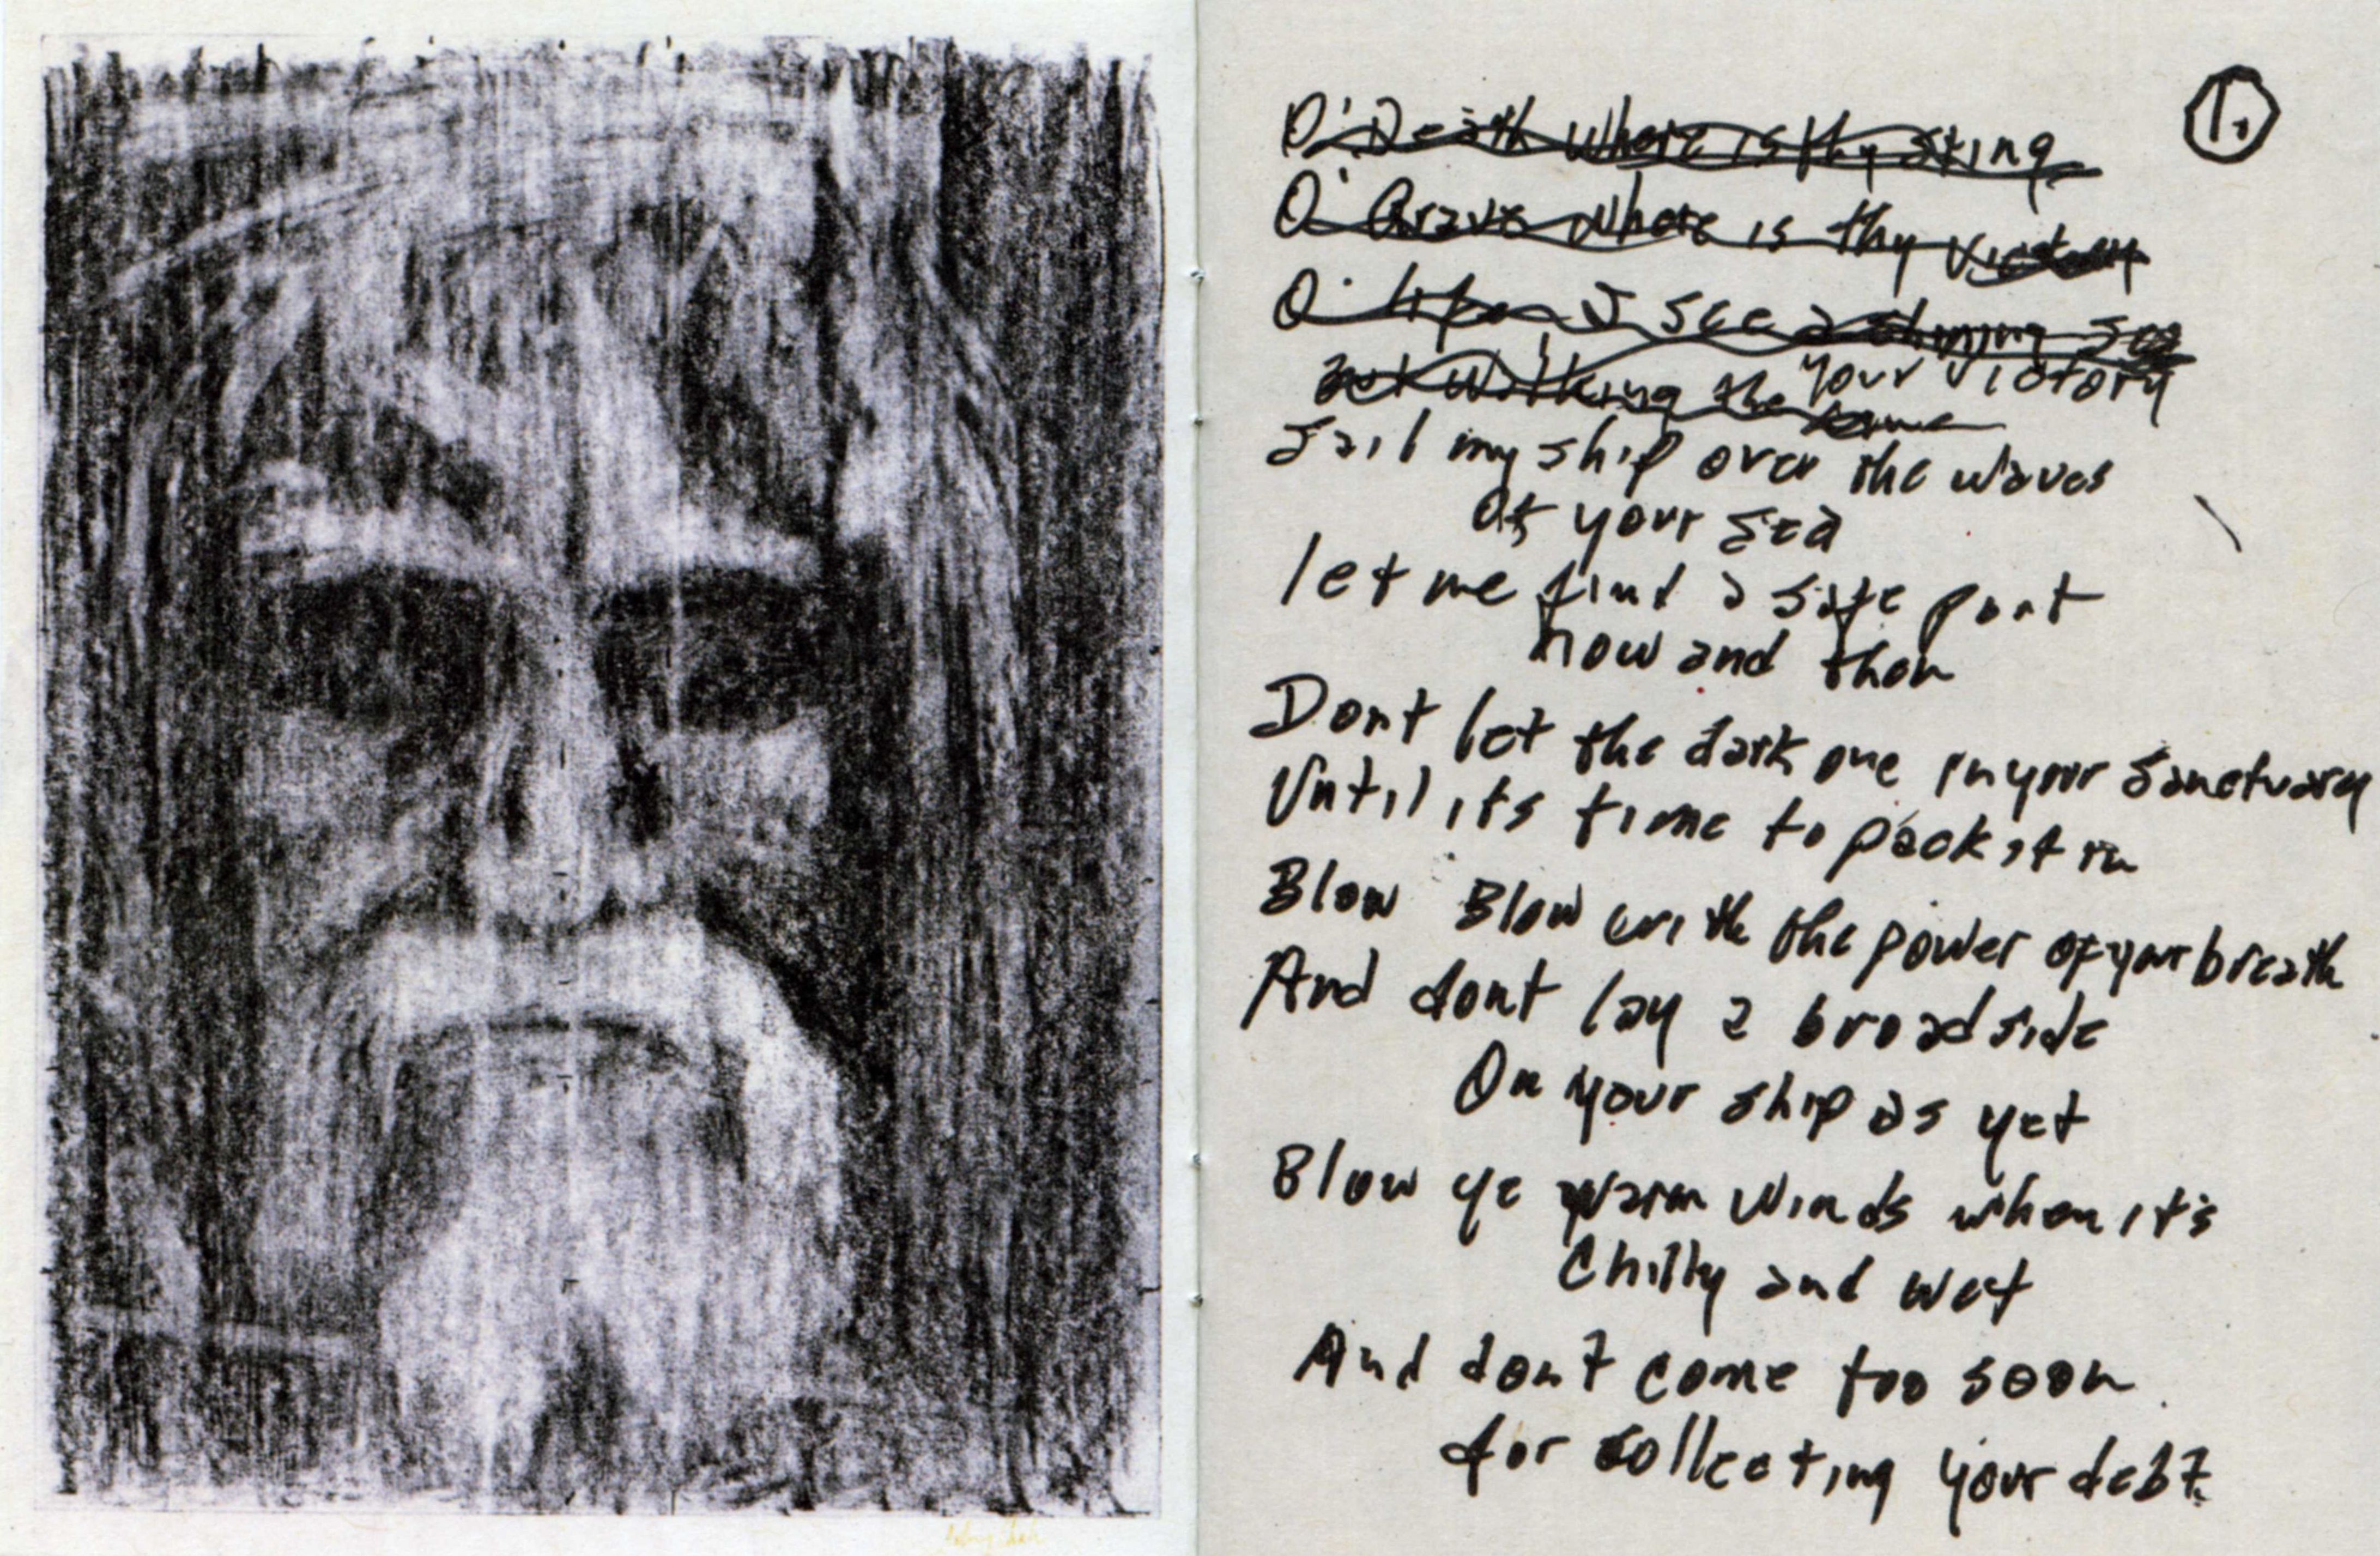 1.
O' Death where is thy sting
O' Grave where is thy victory
O' life I see a shining sea
but walking the same
your victory
Sail my ship over the waves
Of your Sea
let me find a safe port
now and then
Dont let the dark one in your Sanctuary
Until its time to pack it in
Blow Blow with the power of your breath
And dont lay a broadside
On your ship as yet
Blow ye warm Winds when it's
Chilly and wet
And don't come too soon
for collecting your debt.